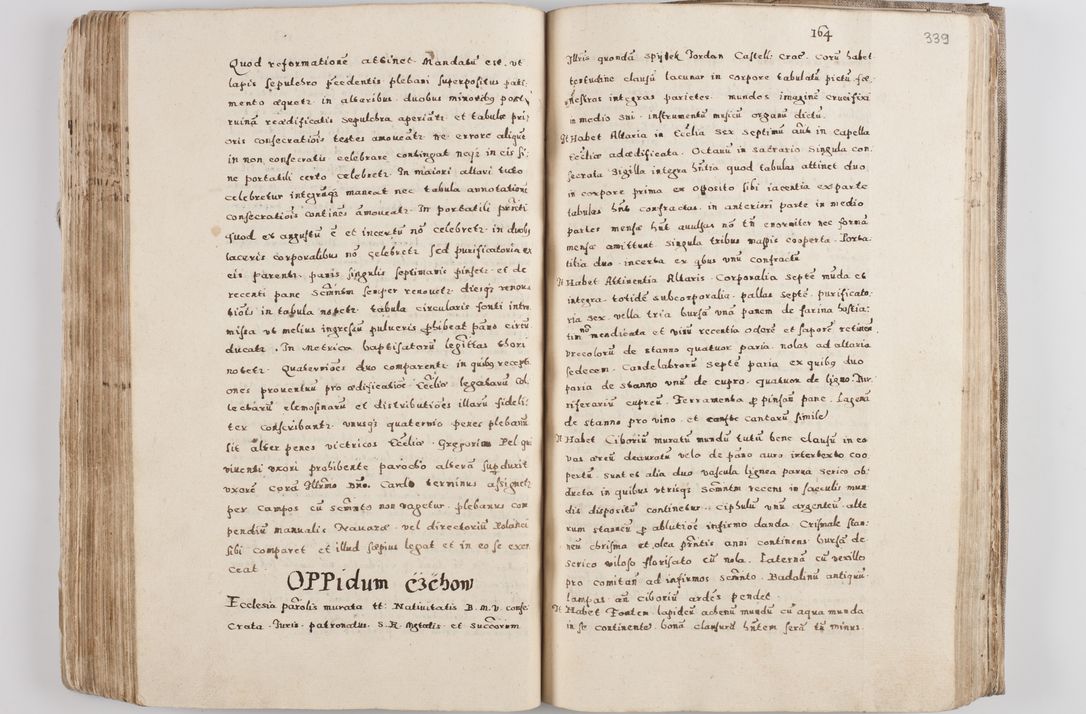 Quod reformationē attinet. Mandatū est. vt
lapis sepulchro p̃cedentis plebani superpositus paui
mento æquetr in altaribus duobus minoribꝯ post
ruinā reædificatis sepulchra aperiāt et tabulæ pri
oris consecratiōis testes amoueātr ne errore aliquē
in non consecratis celebrare contingat neqꝫ in eis si
ne portatili certo celebretr. In maiori altari tuto
celebretur integrūqꝫ maneat nec tabula annotationē
consecratiōis continēs amoueatr. In portatili pr̃nti
quod ex angustū ē et incertū nō celebretr. in duobꝯ
laceris corporalibus nō celebretr sed purificatoria ex
eis parentr. panis singulis septimanis pinsetr. et de
recenti pane Scm̃ntm semper renouetr diesqꝫ renoua
tiōis in tabula notetr. tabula circularis fonti intro
missa vt melius ingressū pulueris ꝓhibeat pāno circū
ducatr. In metrica baptisatorū legittās thori
notetr. Quaterniōes duo comparentr in quibꝯ recepti
ones prouentuū pro ædificatiōe Ecc̃liæ legatarū col
lectarū elemosinarū et distributiōes illarū fideli
ter conscribantr. vnusqꝫ quaternio penes plebanū
sit alter penes victricos Ecc̃liæ. Gregorium Pel qui
viuenti vxori prohibente parocho alterā supduxit
vxorē corā Illr̃mo Dño. Cardl̃e terminus assignetr
per campos cū Scm̃nto non vagetur. plebanus com
pendiū manualis Nauaræ vel directoriū Polanci
sibi comparet et illud sæpius legat et in eo se exer
ceat.
OPPidum Czchow
Ecclesia par̃olis murata tt: Natiuitatis B. M. V. conse
crata. Iuris patronatus. S. R. Mg̃tatis et Succõrum
164
339
Illris quondā Spytek Iordan Castelli Crac. Corū habet
testudine clausū lacunar in corpore tabulatū pictū fæ
nestras integras parietes mundos imaginē crucifixi
in medio sui. instrumentū musicū organū dictū.
It Habet Altaria in Ecc̃lia sex Septimū aūt in capella
Ecc̃liæ adædificata. Octauū in sacrario Singula con
secrata Sigilla integra hñtia quod tabulas attinet duo
in corpore prima ex opposito sibi iacentia ex parte
tabulas hñt confractas. in anteriori parte in medio
partes mensæ hñt auulsas nō tñ enormiter nec formā
mensæ amittunt singula tribus mappis cooperta. Porta
tilia duo. incerta ex qbus vnū confractū
It Habet Attinentia Altaris. Corporalia Septē mūda et
integra. totidē subcorporalia. pallas septē. purificato
ria sex. vella tria bursā vnā panem de farina hostia
tim nō mendicata et vinū recentia odorē et saporē retinen
Vrceolorū de stanno quatuor paria. nolas ad altaria
sedecem. Candelabrorū septē paria ex quibꝯ duo
paria de stanno vnū de cupro. quatuor de ligno. Tur
riferariū cupreū. Ferramenta ꝓ pinsañ pane. Lagenā
de stanno pro vino. et cantarū simile
It Habet Ciboriū muratū mundū tutū bene clausū in eo
vas æreū deauratū velo de pāno auro intertexto coo
pertū. sunt et alia duo vascula lignea parua serico ob
ducta in quibus vtrisqꝫ Scm̃ntm recens in sacculis mun
dis dispositū continetur. Ciphulū vnū argenteū. alte
rum stanneū ꝓ ablutiōe infirmo danda. Crismale stan
neū chrisma et olea pr̃ntis anni continens bursā de
serico viloso florisato cū nola. Laternā cū vexillo
pro comitañ ad infirmos Scm̃nto. Badalinū antiquū
lampas añ ciboriū ardēs pendet
It Habet Fontem lapideū æheñū mundū cū aqua munda
in se continente. bonā clausurā hñtem serā tñ minus